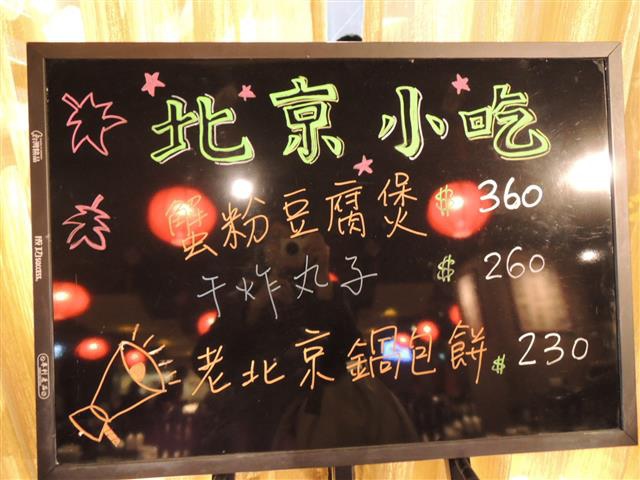 北京小吃
蟹粉豆腐煲 $ 360
干炸丸子 $ 260
老北京鍋包餅 $ 230